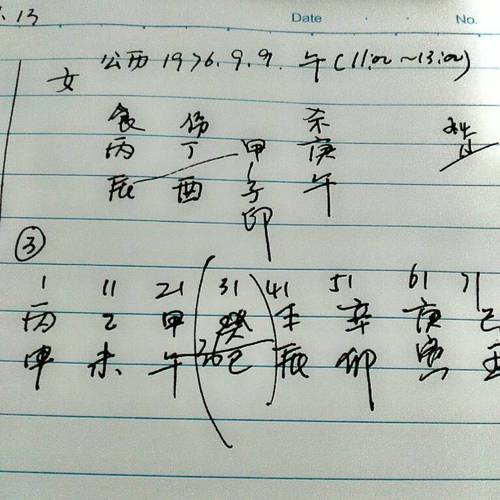 .13 Date No.
公历 1976.9.9. 午(11:00~13:00)
女
食 伤 杀
丙 丁 甲 庚
辰 酉 子 午
印
③
1 11 21 31 41 51 61 71
丙 乙 甲 癸 壬 辛 庚 己
申 未 午 巳 辰 卯 寅 丑